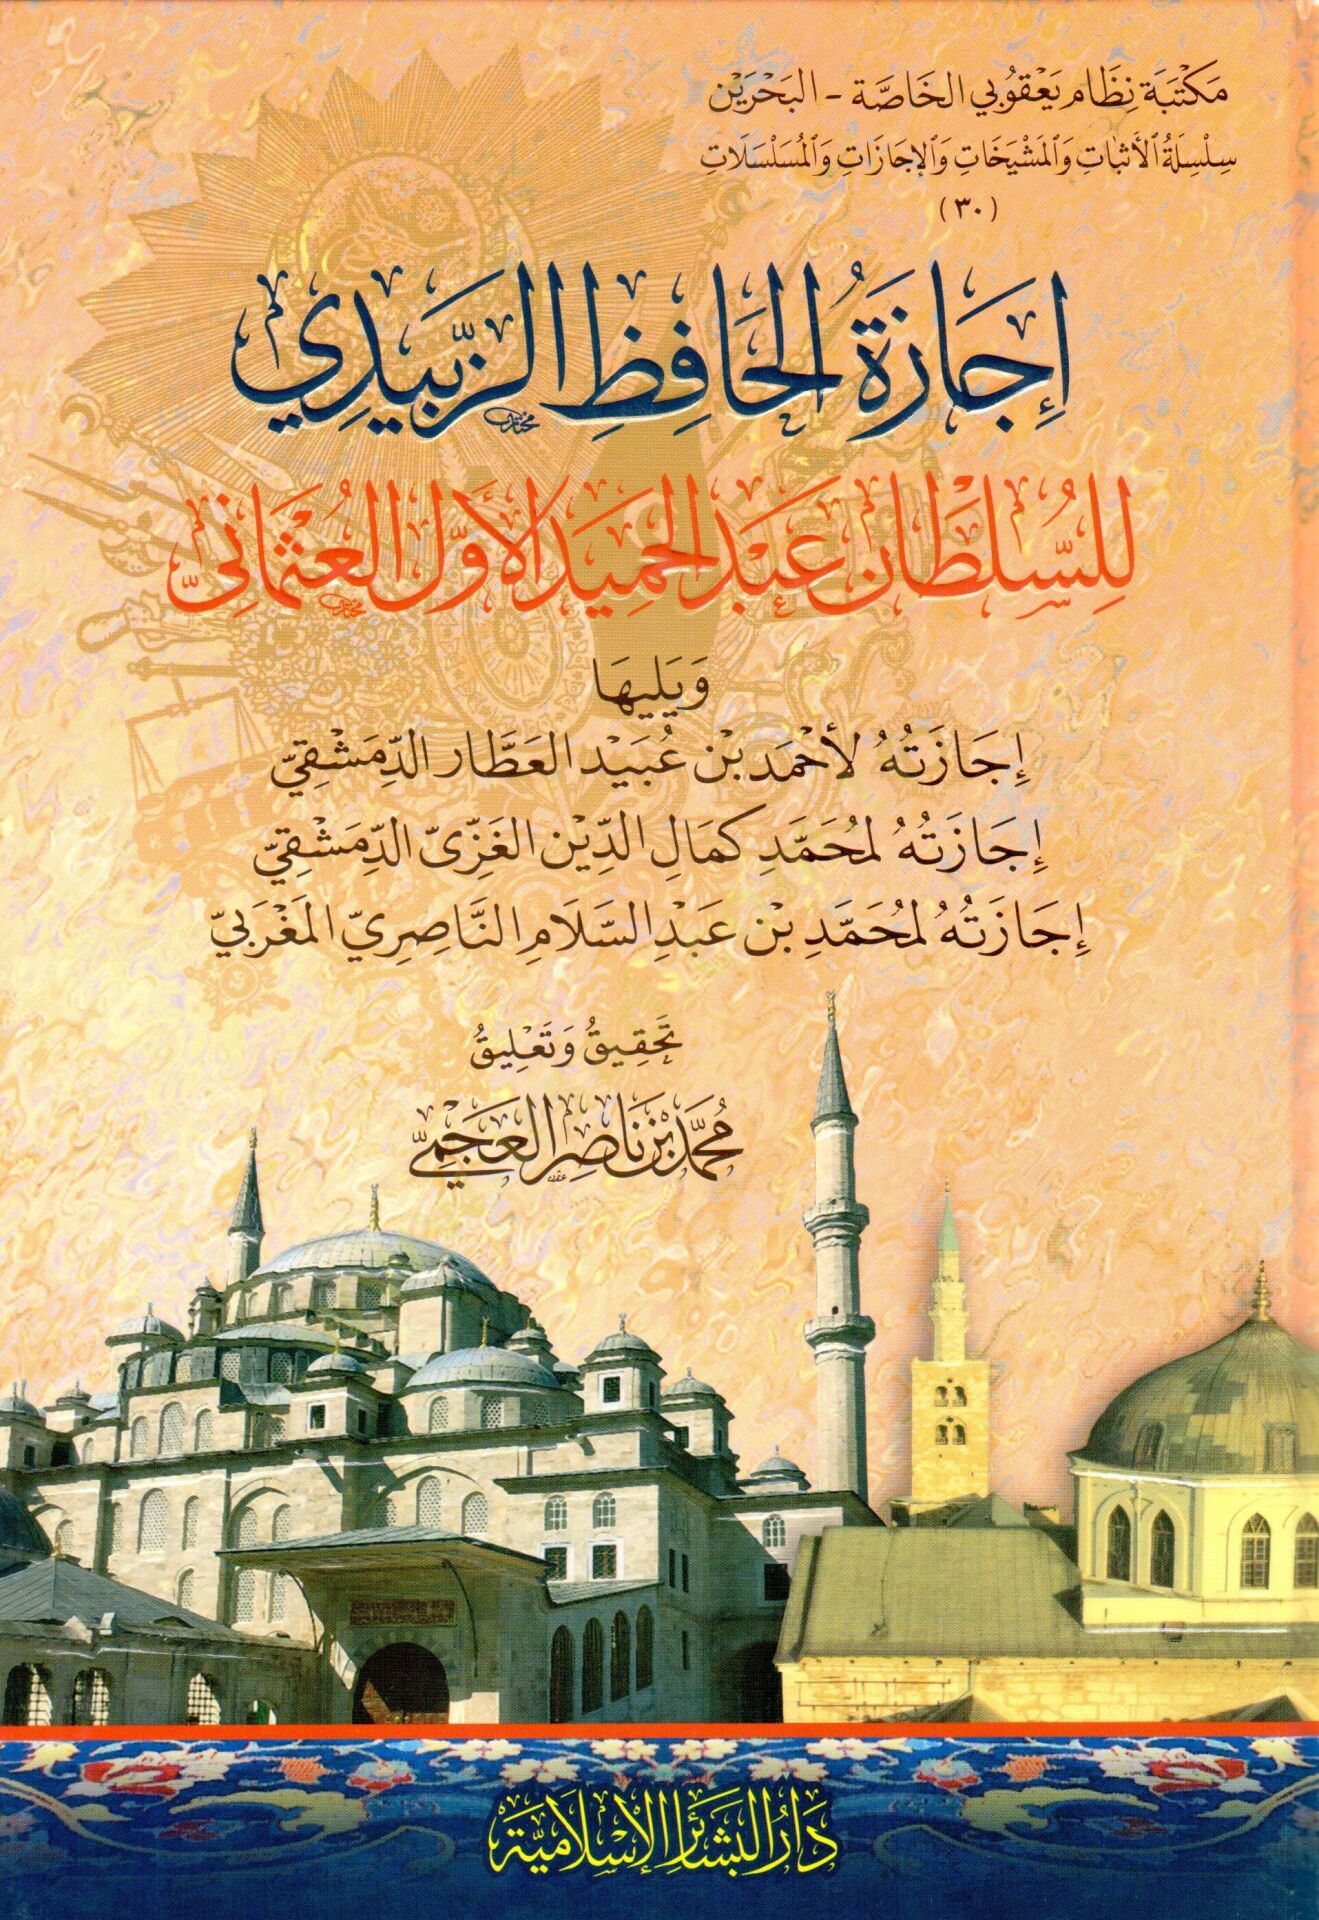 مَكْتَبَة نِظَام يَعْقُوبِي الخَاصَّة - البَحْرَيْن
سِلْسِلَةُ الأَثْبَاتِ وَالمَشْيَخَاتِ وَالإِجَازَاتِ وَالمُسَلْسَلَاتِ
(٣٠)
إِجَازَةُ الحَافِظِ الزَّبِيدِي
لِلسُّلْطَان عَبْد الحَمِيد الأَوَّل العُثْمَانِيّ
وَيَلِيهَا
إِجَازَتُهُ لأَحْمَد بْن عُبَيْد العَطَّار الدِّمَشْقِيّ
إِجَازَتُهُ لمُحَمَّد كَمَالِ الدِّيْن الغَزِّيّ الدِّمَشْقِيّ
إِجَازَتُهُ لمُحَمَّد بْن عَبْدِ السَّلَامِ النَّاصِرِيّ المَغْرَبِيّ
تَحْقِيقُ وَتَعْلِيقُ
مُحَمَّد بْن نَاصِر العَجَمِيّ
دَارُ البَشَائِر الإِسْلَامِيَّة